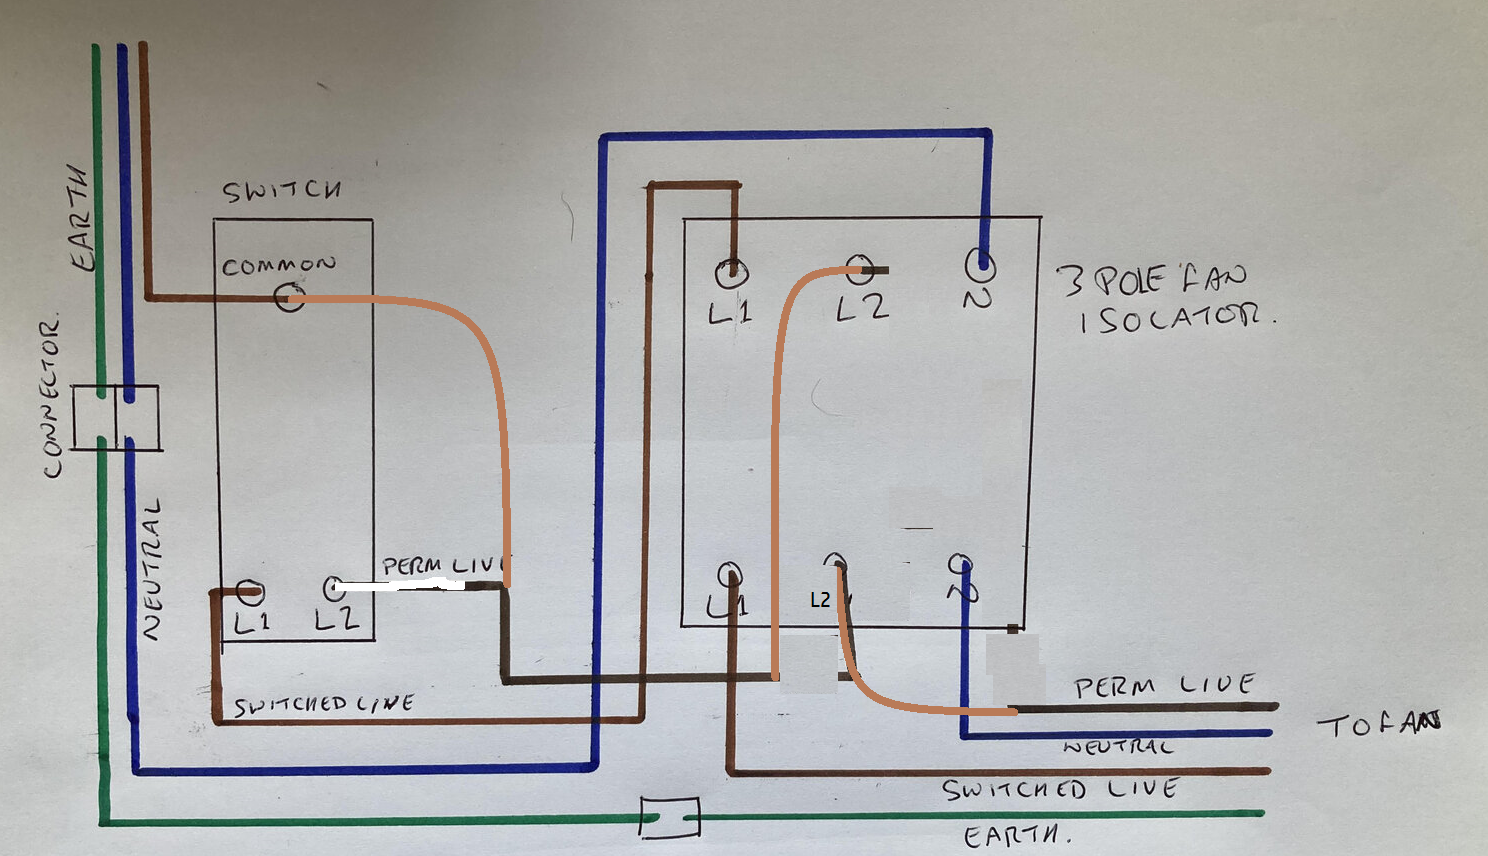 EARTH
SWITCH
COMMON
CONNECTOR.
NEUTRAL
L1
L2
PERM LIVE
SWITCHED LIVE
L1
L2
N
3 POLE FAN
ISOLATOR.
L1
L2
N
PERM LIVE
TO FAN
NEUTRAL
SWITCHED LIVE
EARTH.